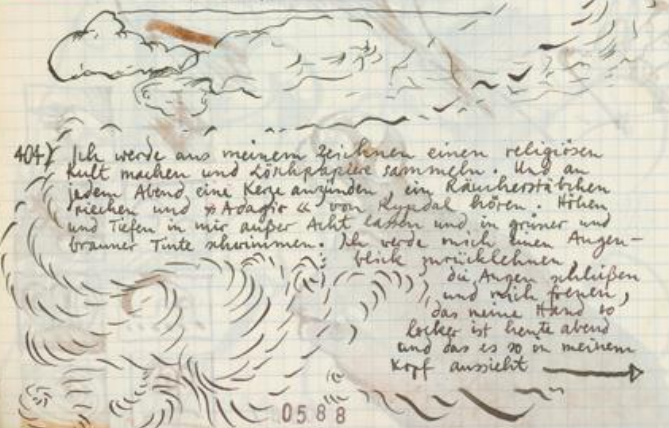 404) Ich werde aus meinem Zeichnen einen religiösen
Kult machen und Löschpapiere sammeln. Und an
jedem Abend eine Kerze anzünden, ein Räucherstäbchen
riechen und »Adagio« von hören. Höhen
und Tiefen in mir außer Acht lassen und in grüner und
brauner Tinte schwimmen. Ich werde mich einen Augen-
blick zurücklehnen,
die Augen schließen
und mich freuen,
das meine Hand so
locker ist heute abend
und das es so in meinem
Kopf aussieht
0588